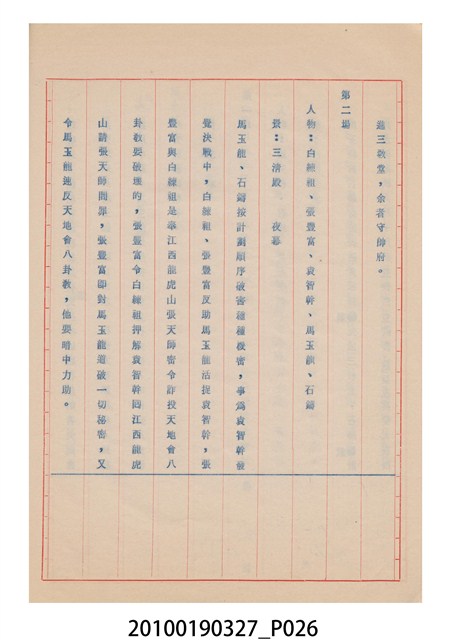 進三教堂，余者守帥府。
第二場
人物：白練祖、張豐富、袁智幹、馬玉龍、石鑄
景：三清殿　夜幕
馬玉龍、石鑄按計劃順序破密種種秘密，事為袁智幹發
覺決戰中，白練祖、張豐富反助馬玉龍活捉袁智幹，張
豐富與白練祖是奉江西龍虎山張天師密令詐投天地會八
卦教要破壞的，張豐富令白練祖押解袁智幹回江西龍虎
山請張天師問罪，張豐富即對馬玉龍道破一切秘密，又
令馬玉龍速反天地會八卦教，他要暗中力助。
20100190327_P026